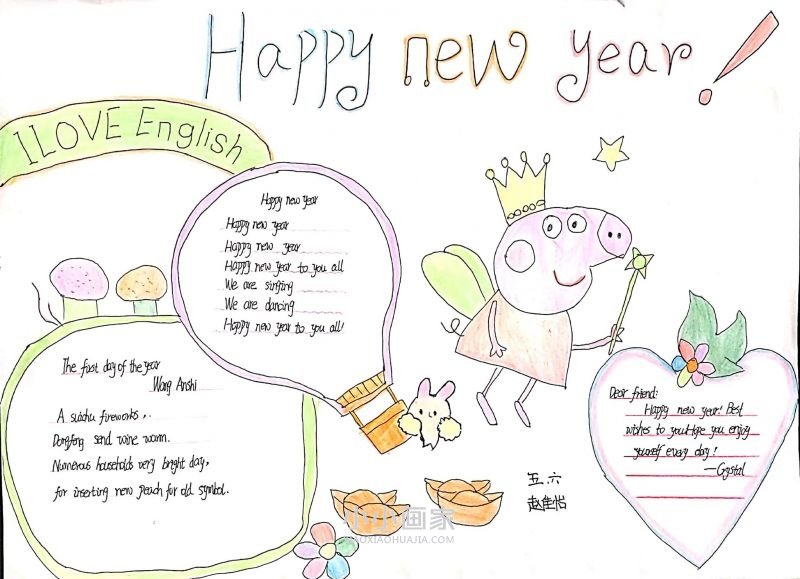 Happy new year!
I LOVE English
Happy new year
Happy new year
Happy new year
Happy new year to you all
We are singing
We are dancing
Happy new year to you all!
The first day of the year
Wang Anshi
A suichu fireworks,.
Dongfeng send wine warm.
Numerous households very bright day,
for inserting new peach for old symbol.
Dear friend:
Happy new year! Best
wishes to you!Hope you enjoy
yourself every day!
—Crystal
五.六
赵佳怡
小小画家
XIAOXIAOHUAJIA.COM